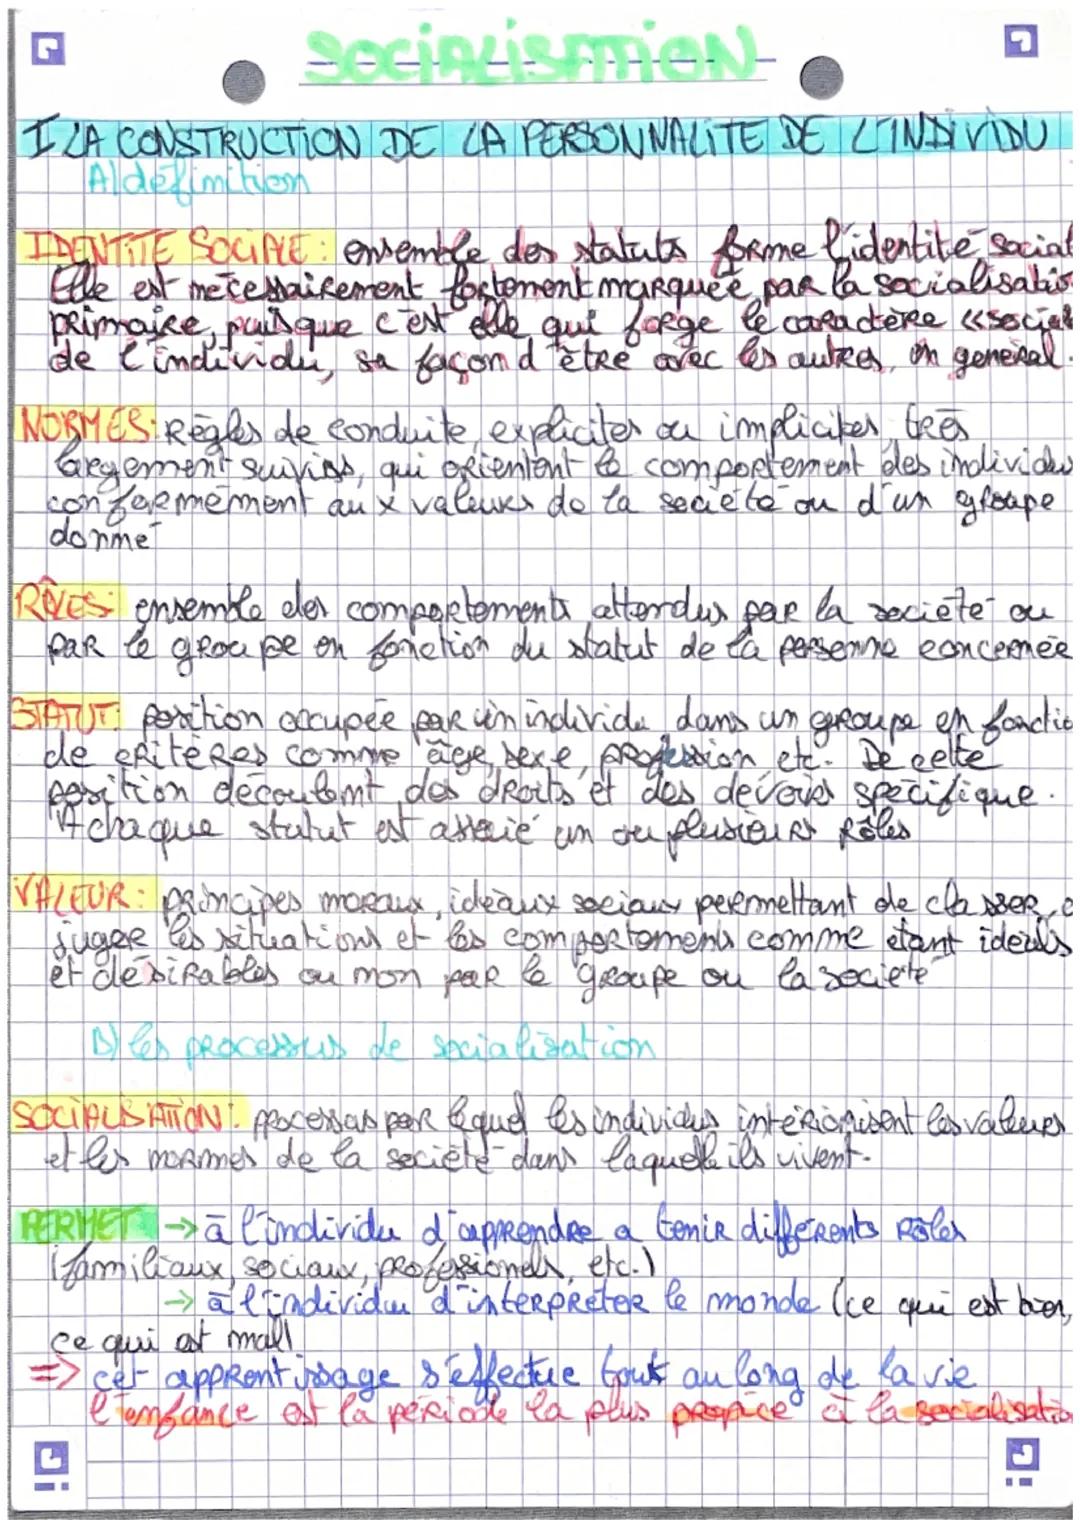 SOCIALISATION
I LA CONSTRUCTION DE LA PERSONNALITE DE L'INDIVIDU
A) définition
IDENTITE SOCIALE : ensemble des statuts forme l'identité social
Elle est nécessairement fortement marquée par la socialisatio
primaire, puisque c'est elle qui forge le caractère «social
de l'individu, sa façon d'être avec les autres, en general.
NORMES: Règles de conduite, explicites ou implicites, très
largement suivies, qui orientent le comportement des individus
conformément aux valeurs de la société ou d'un groupe
donné
RÔLES: ensemble des comportements attendus par la société ou
par le groupe en fonction du statut de la personne concernée
STATUT: position occupée par un individu dans un groupe en fonctio
de critères comme âge, sexe, profession etc. De cette
position découlent des droits et des devoirs spécifique.
A chaque statut est associé un ou plusieurs rôles
VALEUR: principes moraux, idéaux sociaux permettant de classer, e
juger les situations et les comportements comme étant idéals
et désirables ou non par le groupe ou la société
B) les processus de socialisation
SOCIALISATION: processus par lequel les individus intériorisent les valeurs
et les normes de la société dans laquelle ils vivent.
PERMET → à l'individu d'apprendre a tenir différents rôles
(familiaux, sociaux, professionels, etc.)
→ à l'individu d'interpréter le monde (ce qui est bien,
ce qui est mal)
=> cet apprentissage s'effectue tout au long de la vie
l'enfance est la période la plus propice à la socialisatio